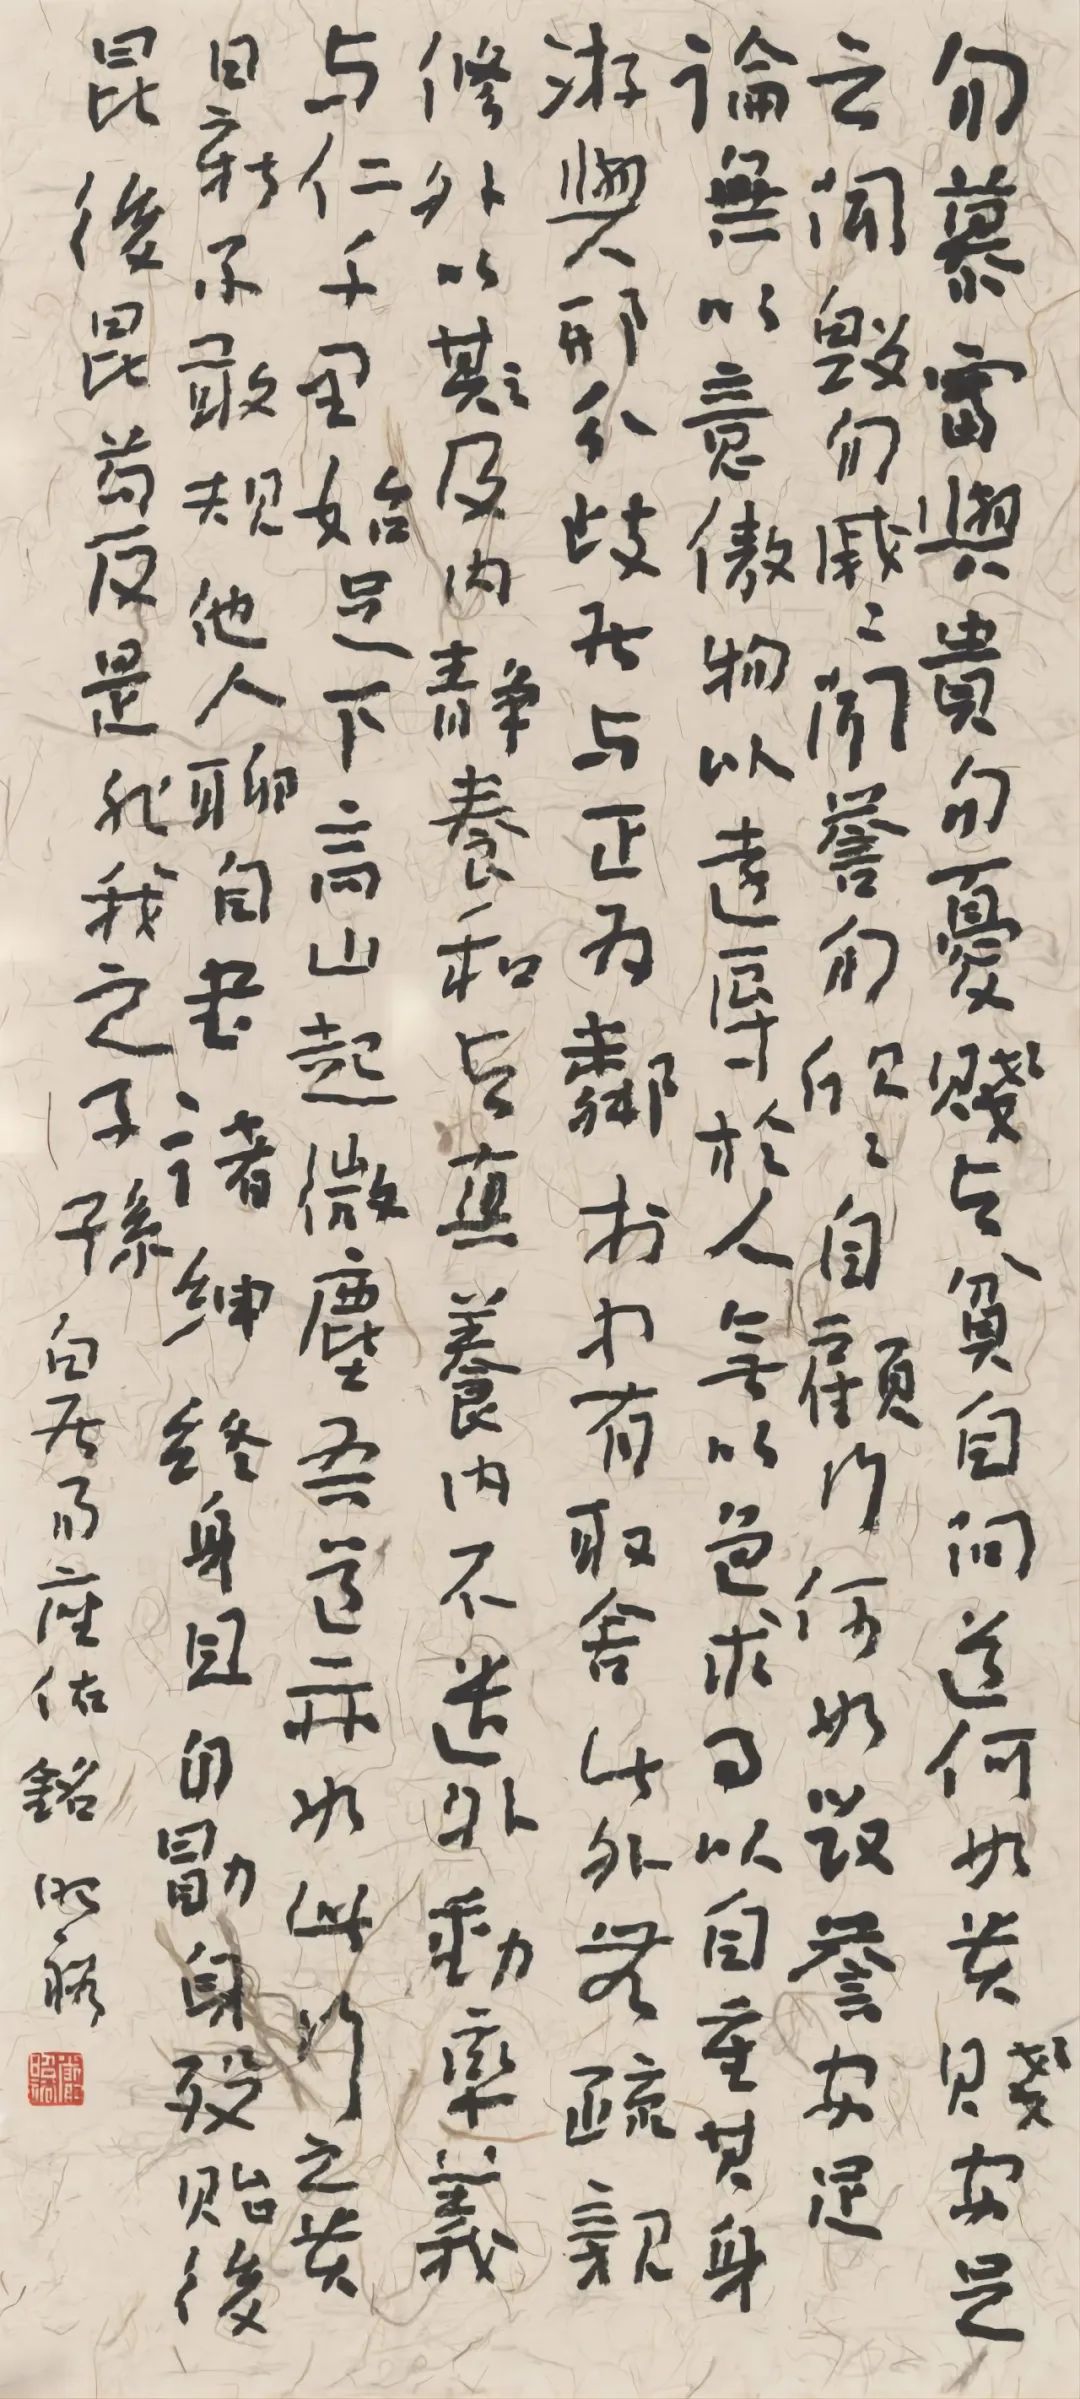 勿慕富與貴勿憂賤与貧自問道何如貴賤安足
云聞毀勿戚〻聞譽勿欣〻自顧行何如毀譽安足
論無以意傲物以遠辱於人無以色求事以自重其身
游與邪分歧居与正為鄰於中有取舍此外無疏親
修外以其及内靜養和与真養内不遺外動率義
与仁千里始足下高山起微塵吾道亦如此行之貴
日新不敢規他人聊自書諸紳終身且自勖身歿貽後
昆後昆苟反是非我之子孫
白居易座佑銘